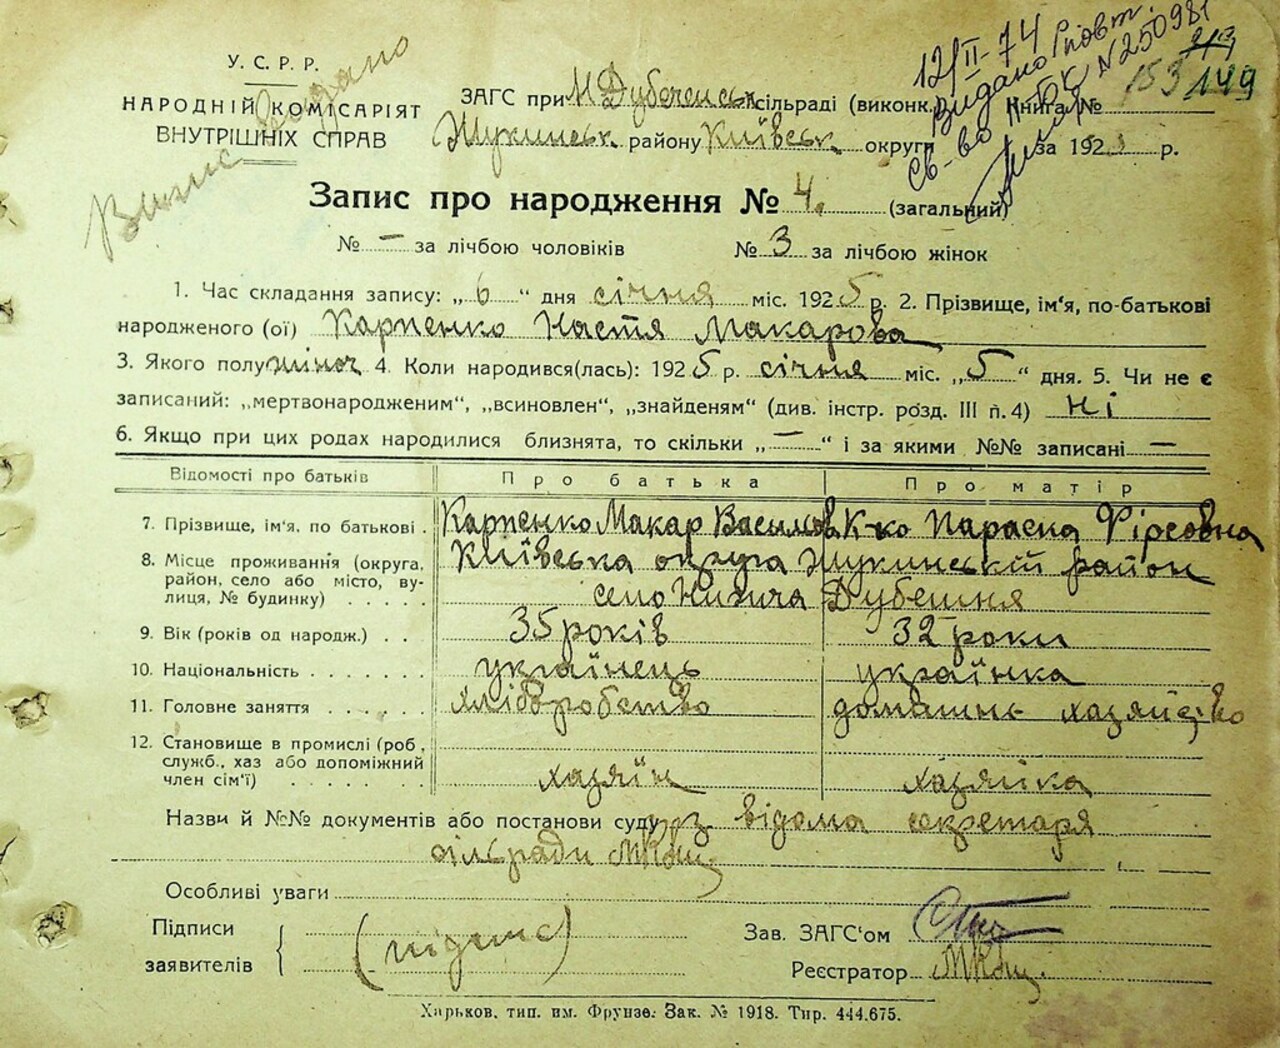 12/II-74
Видано повт.
св-во № 250981
У. С. Р. Р.
НАРОДНІЙ КОМІСАРІЯТ
ВНУТРІШНІХ СПРАВ
Випис видано
ЗАГС при М Дубеченськ сільраді (виконк.) Книга № 153 149
Жукинськ району Київськ округи за 192 р.
Запис про народження № 4. (загальний)
№ — за лічбою чоловіків № 3 за лічбою жінок
1. Час складання запису: „ 6 “ дня січня міс. 1925 р. 2. Прізвище, ім‘я, по-батькові
народженого (ої) Карпенко Настя Макарова
3. Якого полу жіноч 4. Коли народився(лась): 1925 р. січня міс. „ 5 “ дня. 5. Чи не є
записаний: „мертвонародженим“, „всиновлен“, „знайденям“ (див. інстр. розд. III п. 4) Ні
6. Якщо при цих родах народилися близнята, то скільки „ — “ і за якими №№ записані —
Відомості про батьків Про батька Про матір
7. Прізвище, ім‘я, по батькові . Карпенко Макар Василов К-ко Параска Фірсовна
8. Місце проживання (округа, Київська округа Жукинській район
район, село або місто, ву-
лиця, № будинку) . . . . . село Нижча Дубешня
9. Вік (років од народж.) . . 35 років 32 роки
10. Національність . . . . . . українець українка
11. Головне заняття . . . . . . хліборобство домашнє хазяйство
12. Становище в промислі (роб.,
служб., хаз або допоміжний
член сім‘ї) . . . . . . . хазяїн хазяйка
Назви й №№ документів або постанови суду з відома секретаря
сільради
Особливі уваги
Підписи
заявителів (підпис)
Зав. ЗАГС‘ом
Реєстратор
Харьков. тип. им. Фрунзе. Зак. № 1918. Тир. 444.675.